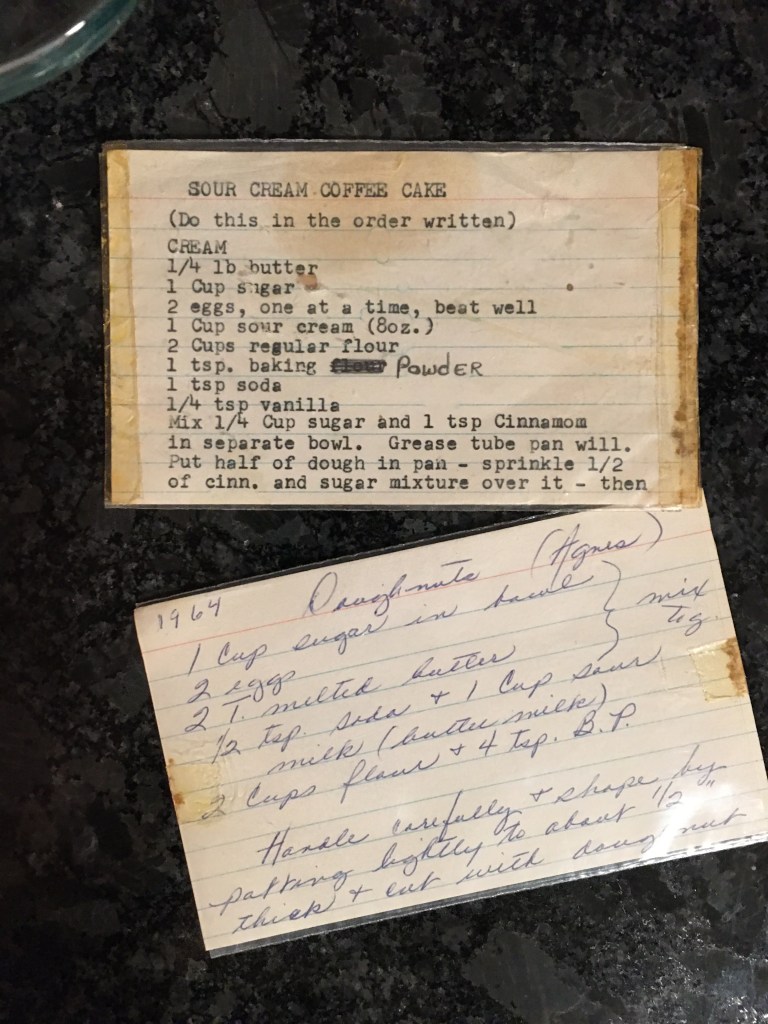 SOUR CREAM COFFEE CAKE
(Do this in the order written)
CREAM
1/4 lb butter
1 Cup sugar
2 eggs, one at a time, beat well
1 Cup sour cream (8oz.)
2 Cups regular flour
1 tsp. baking flour POWDER
1 tsp soda
1/4 tsp vanilla
Mix 1/4 Cup sugar and 1 tsp Cinnamom
in separate bowl. Grease tube pan will.
Put half of dough in pan - sprinkle 1/2
of cinn. and sugar mixture over it - then
1964 Doughnuts (Agnes)
1 Cup sugar in bowl } mix
2 eggs tog.
2 T. melted butter
1/2 tsp. soda + 1 Cup sour
milk (butter milk)
2 Cups flour + 4 tsp. B.P.
Handle carefully + shape by
patting lightly to about 1/2"
thick + cut with doughnut